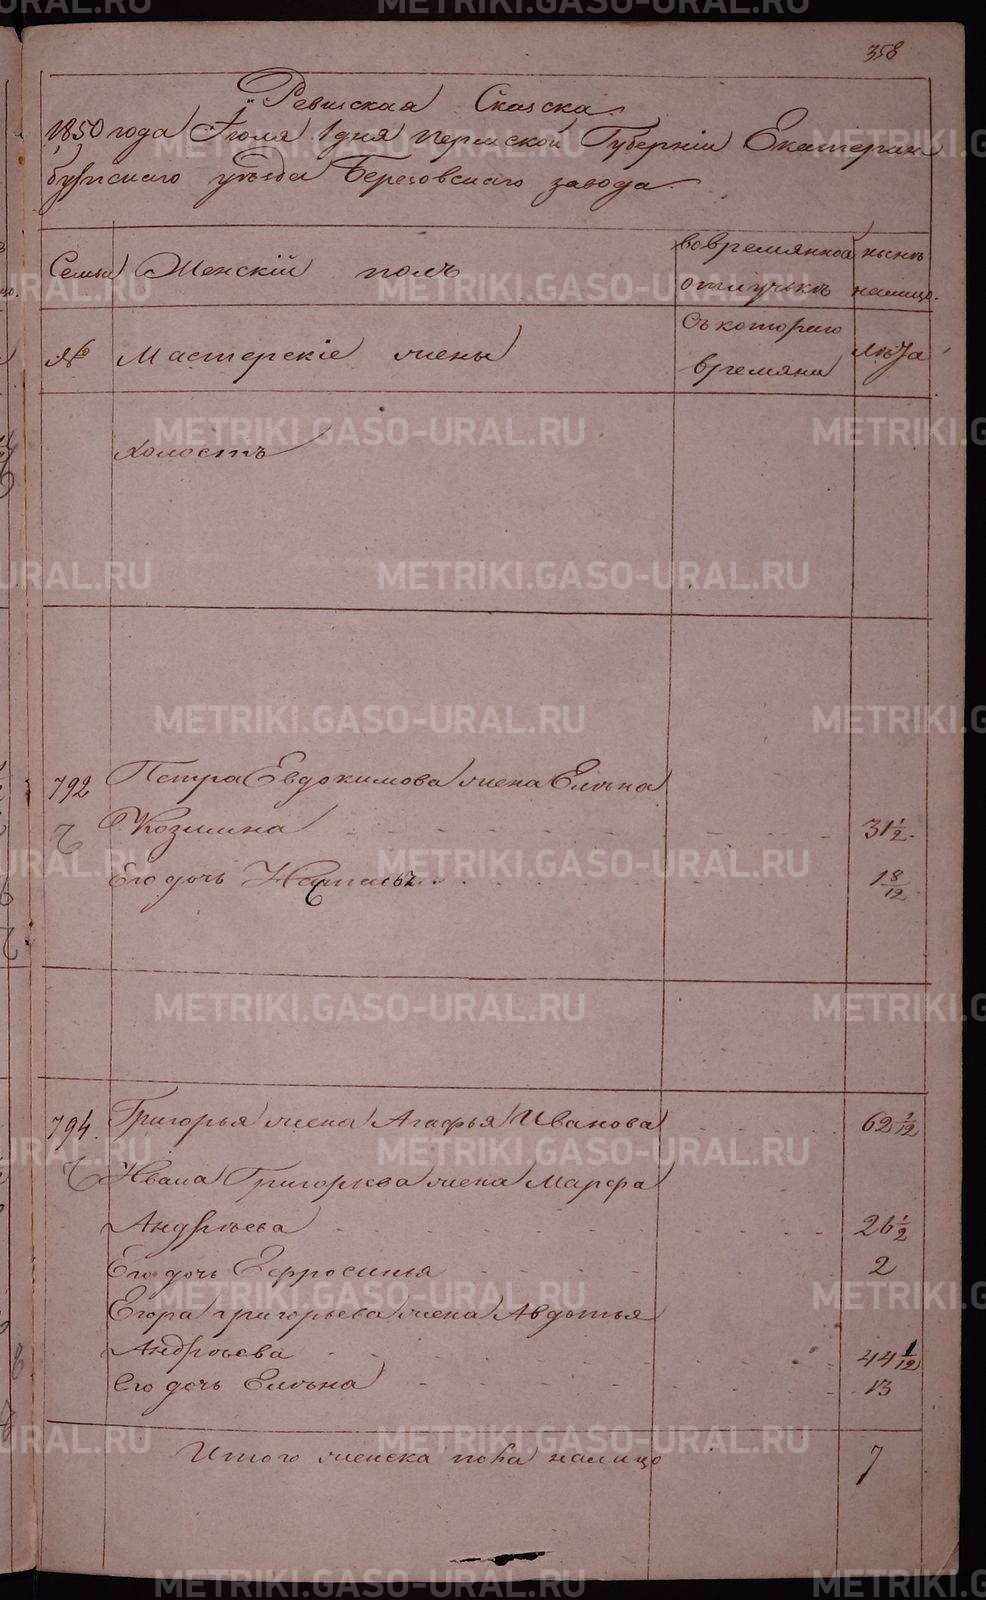 358
Ревизская Сказска
1850 года Июля 1 дня Пермской Губерніи Екатерин
бургскаго уѣзда Березовскаго завода
Семьи Женскій полъ вовремянной нынѣ
отлучькѣ налицо.
№ Мастерскіе жены Съ котораго Лѣта
времяни
холостъ
792 Петра Евдокимова жена Елѣна
Козмина 31 1/2
Его дочь 1 8/12
794. Григорья жена Агафья Иванова 62 1/12
Ивана Григорьева жена Марфа
Андрѣева 26 1/2
Его дочь Ефросинья 2
Егора Григорьева жена Авдотья
Андрѣева 44 1/12
Его дочь Елѣна 13
Итого женска пола налицо 7
METRIKI.GASO-URAL.RU